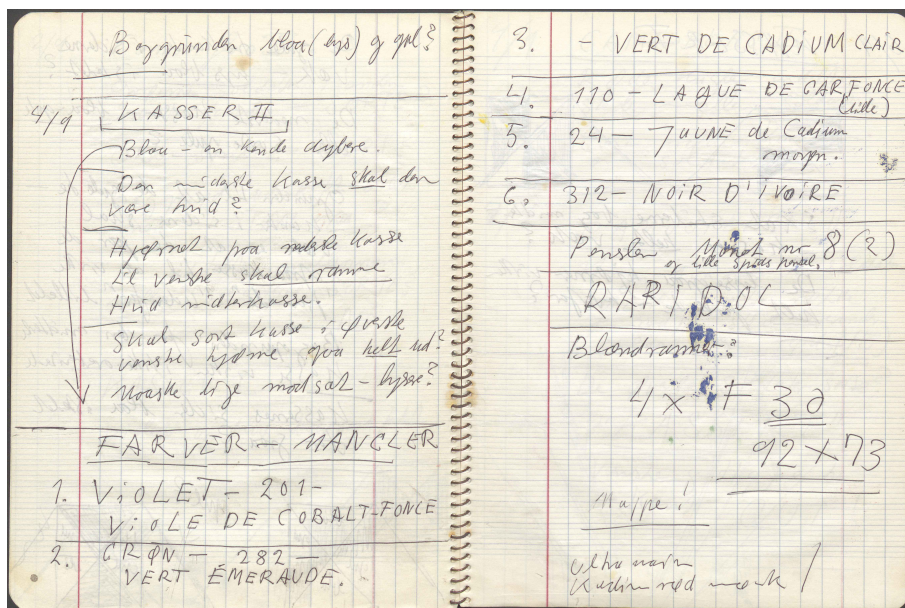 Baggrunden blaa (lys) og gul?
4/9
KASSER II
Blaa - en kende dybere.
Den midterste kasse skal den
være hvid?
Hjørnet paa næste kasse
til venstre skal ramme
Hvid midterkasse.
Skal sort kasse i øverste
venstre hjørne gaa helt ud?
Maaske lige modsat - lysse?
FARVER - MANGLER
1. VIOLET - 201 -
VIOLE DE COBALT-FONCE
2. GRØN - 282 -
VERT ÉMERAUDE.
3. - VERT DE CADIUM CLAIR
4. 110 - LAQUE DE GAR, FONCE
(lille)
5. 24 - JAUNE de Cadium
6. 312 - NOIR D'IVOIRE
Pensler Monet no 8 (2)
og lille spids pensel.
RAPIDOL
Blændramme?
4 x F 30
92 x 73
Mappe!
Ultramarin
Kadium rød